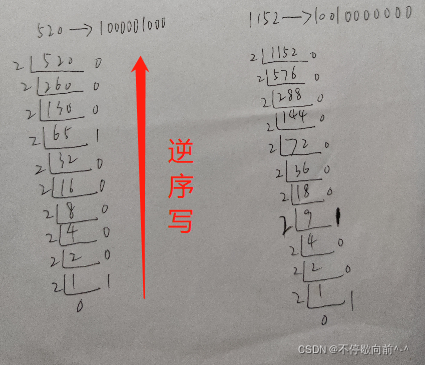 520→1000001000
2 520 0
2 260 0
2 130 0
2 65 1
2 32 0
2 16 0
2 8 0
2 4 0
2 2 0
2 1 1
0
逆序写
1152→10010000000
2 1152 0
2 576 0
2 288 0
2 144 0
2 72 0
2 36 0
2 18 0
2 9 1
2 4 0
2 2 0
2 1 1
0
CSDN @不停歇向前^-^